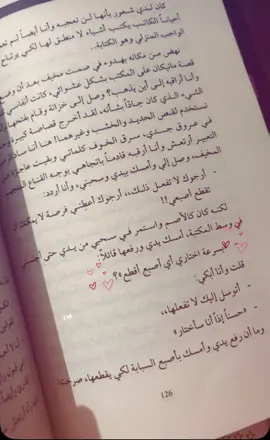 كان لدي شعور بأنها لن تعجبه وأنا أيضاً لم
أحياناً الكاتب يكتب أشياء لا منطق لها لكي يرتاح
الواجب المنزلي وهو الكتابة..
نهض من مكانه بهدوء في صمت مخيف بعد أن
قصة ماتيكان على المكتب بشكل عشوائي، كانت أنفاسي
وأنا أراقبه إلى أين يذهب؟ وصل إلى خزانة وقام بفتحها
الشيء الذي كان جاداً بشأنه، لقد أخرج قصاصة كبيرة
تستخدم لقص الحديد والخشب وغيرهما! هنا أنا
في عروق جسدي، سرق الخوف كلماتي وبقيت عاجزة
التعبير أرتعش وأنا أرقبه قادماً باتجاهي بوجه القناع
المخيف، وصل إلي وأمسك بيدي وسحبني، وأنا أردد:
- أرجوك لا تفعل ذلك،، أرجوك أعطني فرصة لا يمكنك أن
تقطع أصبعي!!
لكنه كان كالأصم واستمر في سحبي من يدي حتى
في وسط المكتبة، أمسك يدي ورفعها قائلاً:
- بسرعة اختاري أي أصبع أقطع؟
قلت وأنا أبكي:
- أتوسل إليك لا تفعلها،،
- «حسناً إذاً أنا سأختار»
وما أن رفع يدي وأمسك بأصبع السبابة لكي يقطعها، صرخت:
126